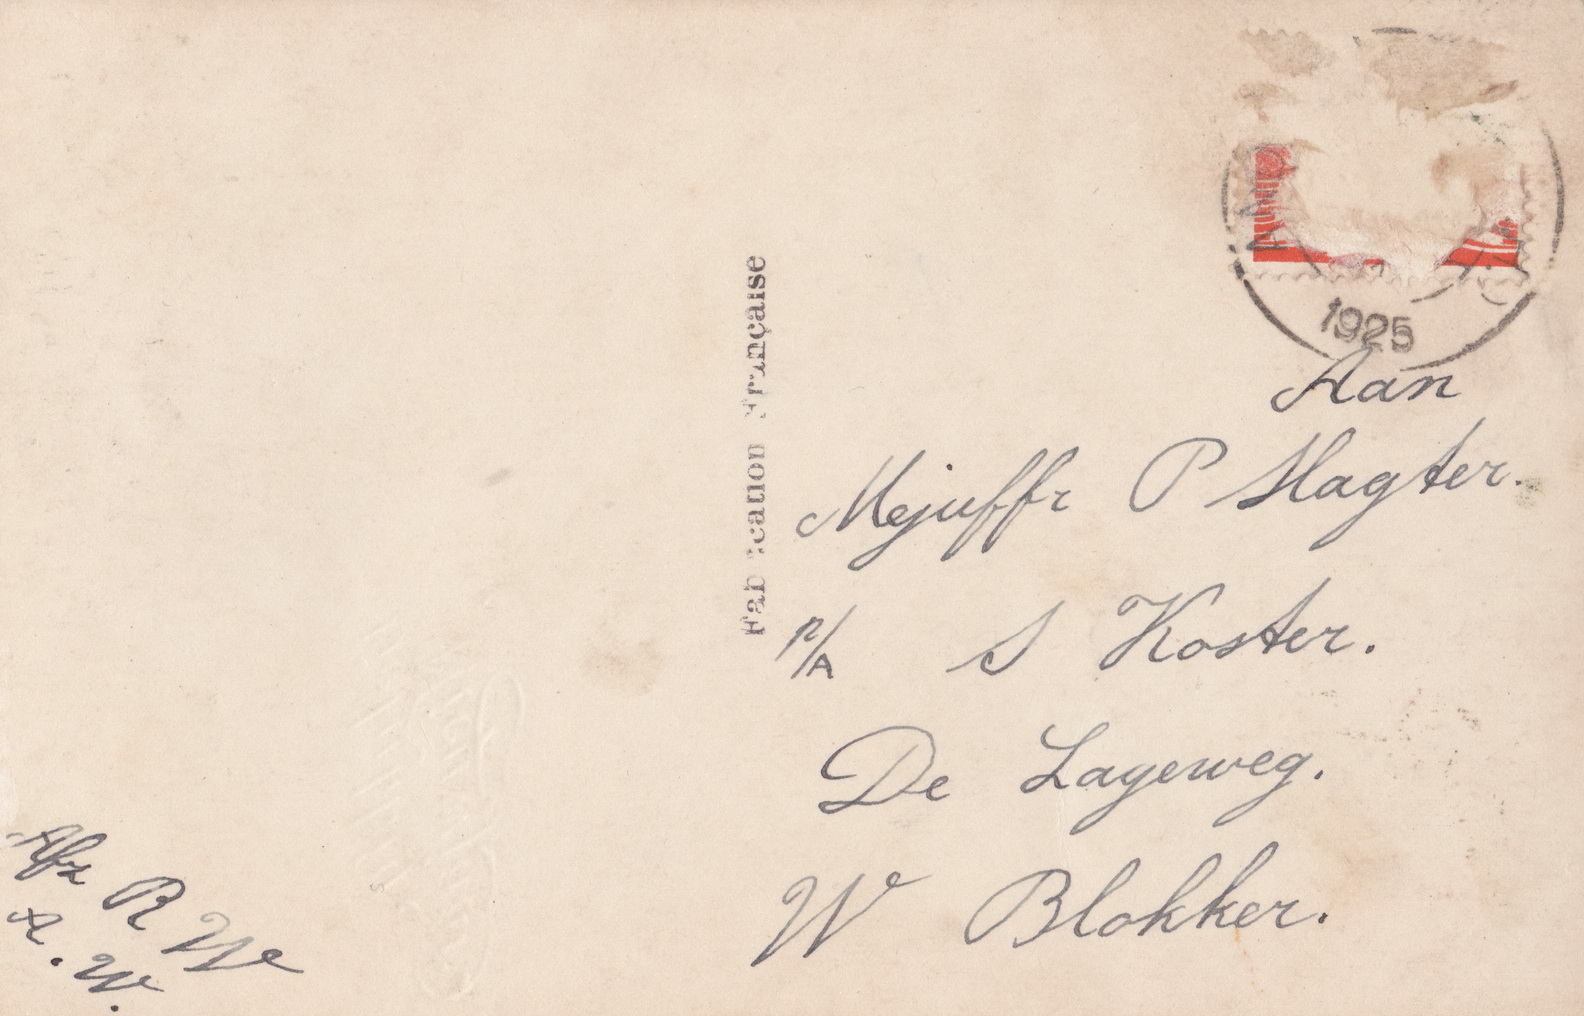 1925
Fabrication Française
Aan
Mejuffr P Slagter.
p/A S Koster.
De Lageweg.
W Blokker.
Afz R W
A. W.